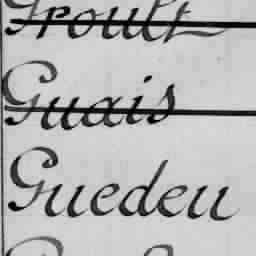 Groult
Guais
Guedeu